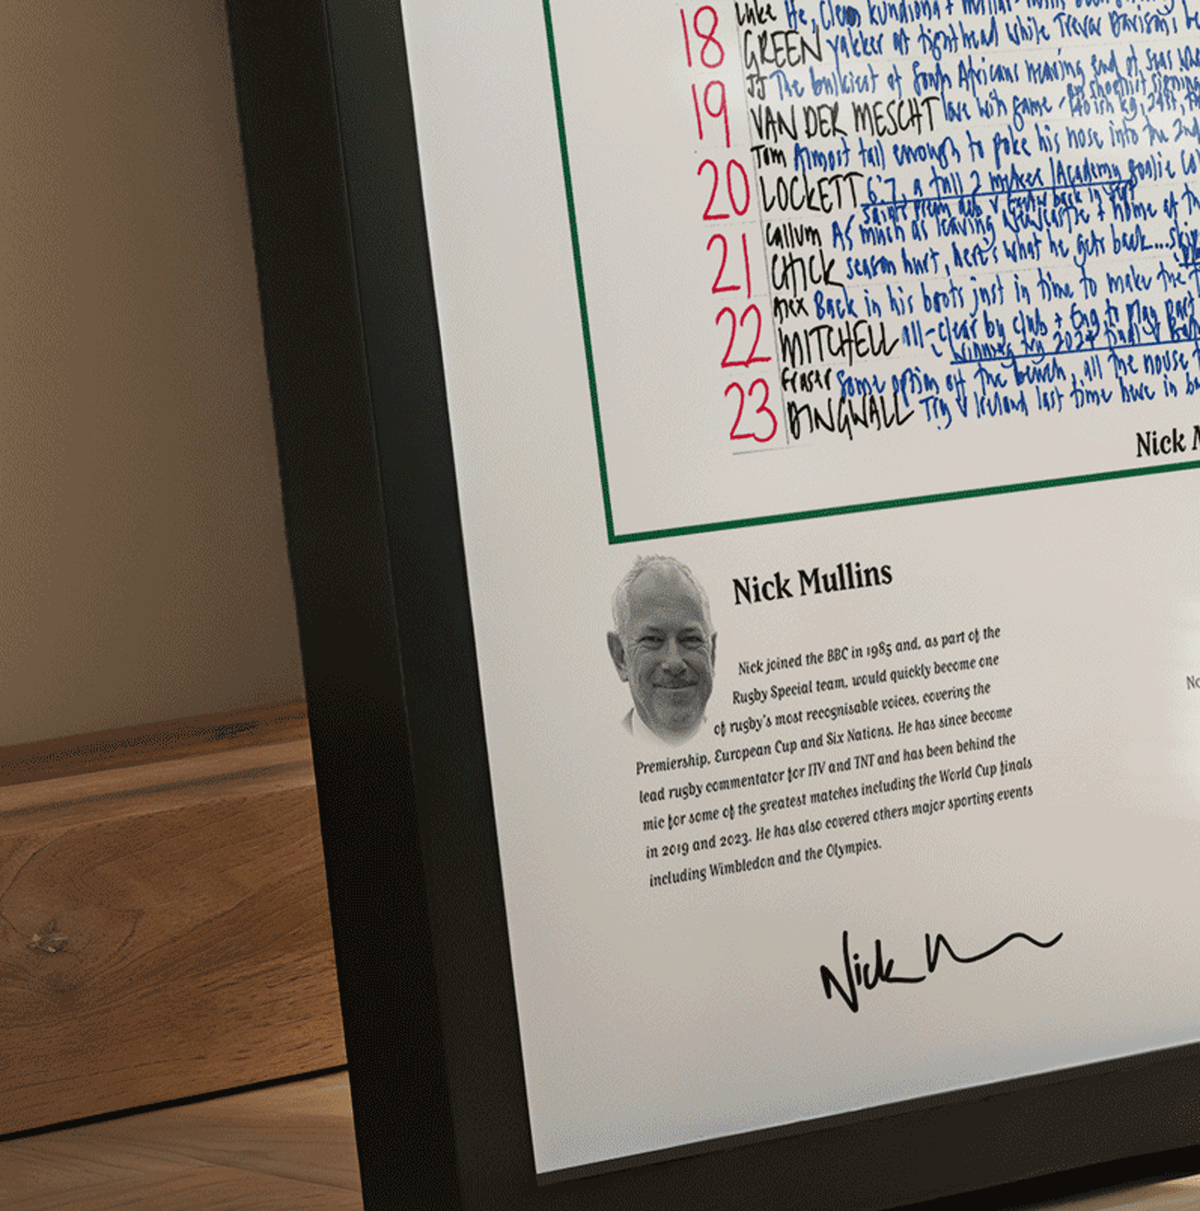 18 Luke He,
GREEN yakker at tighthead while Trevor Davison,
19 JJ The bulkiest of South Africans nearing end of seas
VAN DER MESCHT love with game
20 Tom Almost tall enough to poke his nose into the 2nd
LOCKETT 6'7, a full 2 metres / Academy goalie
21 Callum As much as leaving Newcastle + home at the
CHICK season hurt, here's what he gets back...
22 Alex Back in his boots just in time to make the
MITCHELL all-clear by club + Eng to play part
winning try 2024 final v
23 Fraser Some option off the bench, all the nouse
DINGWALL Try v Ireland last time here in
Nick
Nick Mullins
Nick joined the BBC in 1985 and, as part of the
Rugby Special team, would quickly become one
of rugby's most recognisable voices, covering the
Premiership, European Cup and Six Nations. He has since become
lead rugby commentator for ITV and TNT and has been behind the
mic for some of the greatest matches including the World Cup finals
in 2019 and 2023. He has also covered others major sporting events
including Wimbledon and the Olympics.
No
Nick M